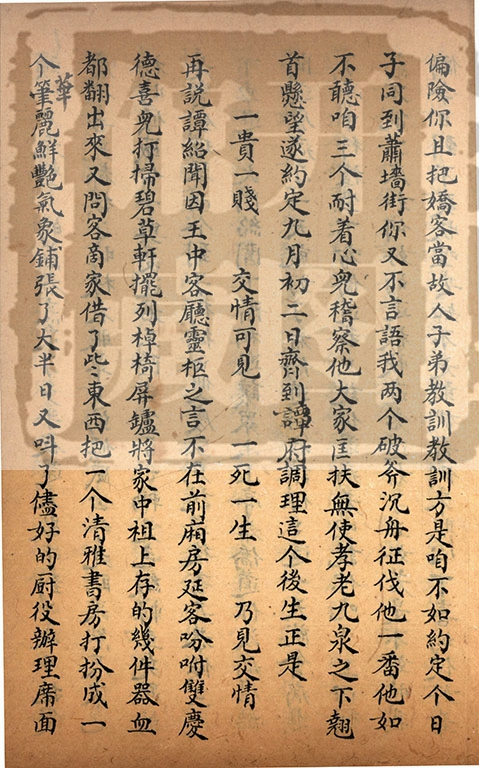 偏險你且把嬌客當故人子弟教訓教訓方是咱不如約定个日
子同到蕭墻街你又不言語我两个破斧沉舟征伐他一番他如
不聽咱三个耐着心兒稽察他大家匡扶無使孝老九泉之下翹
首懸望遂約定九月初二日齊到譚府調理這个後生正是
一貴一賤 交情可見 一死一生 乃見交情
再説譚紹聞因王中客廳靈柩之言不在前廂房延客吩咐雙慶
德喜兒打掃碧草軒擺列棹椅屏鑪將家中祖上存的幾件器皿
都翻出來又問客商家借了些東西把一个清雅書房打扮成一
个華麗鮮艷氣象鋪張了大半日又呌了儘好的厨役辦理席面